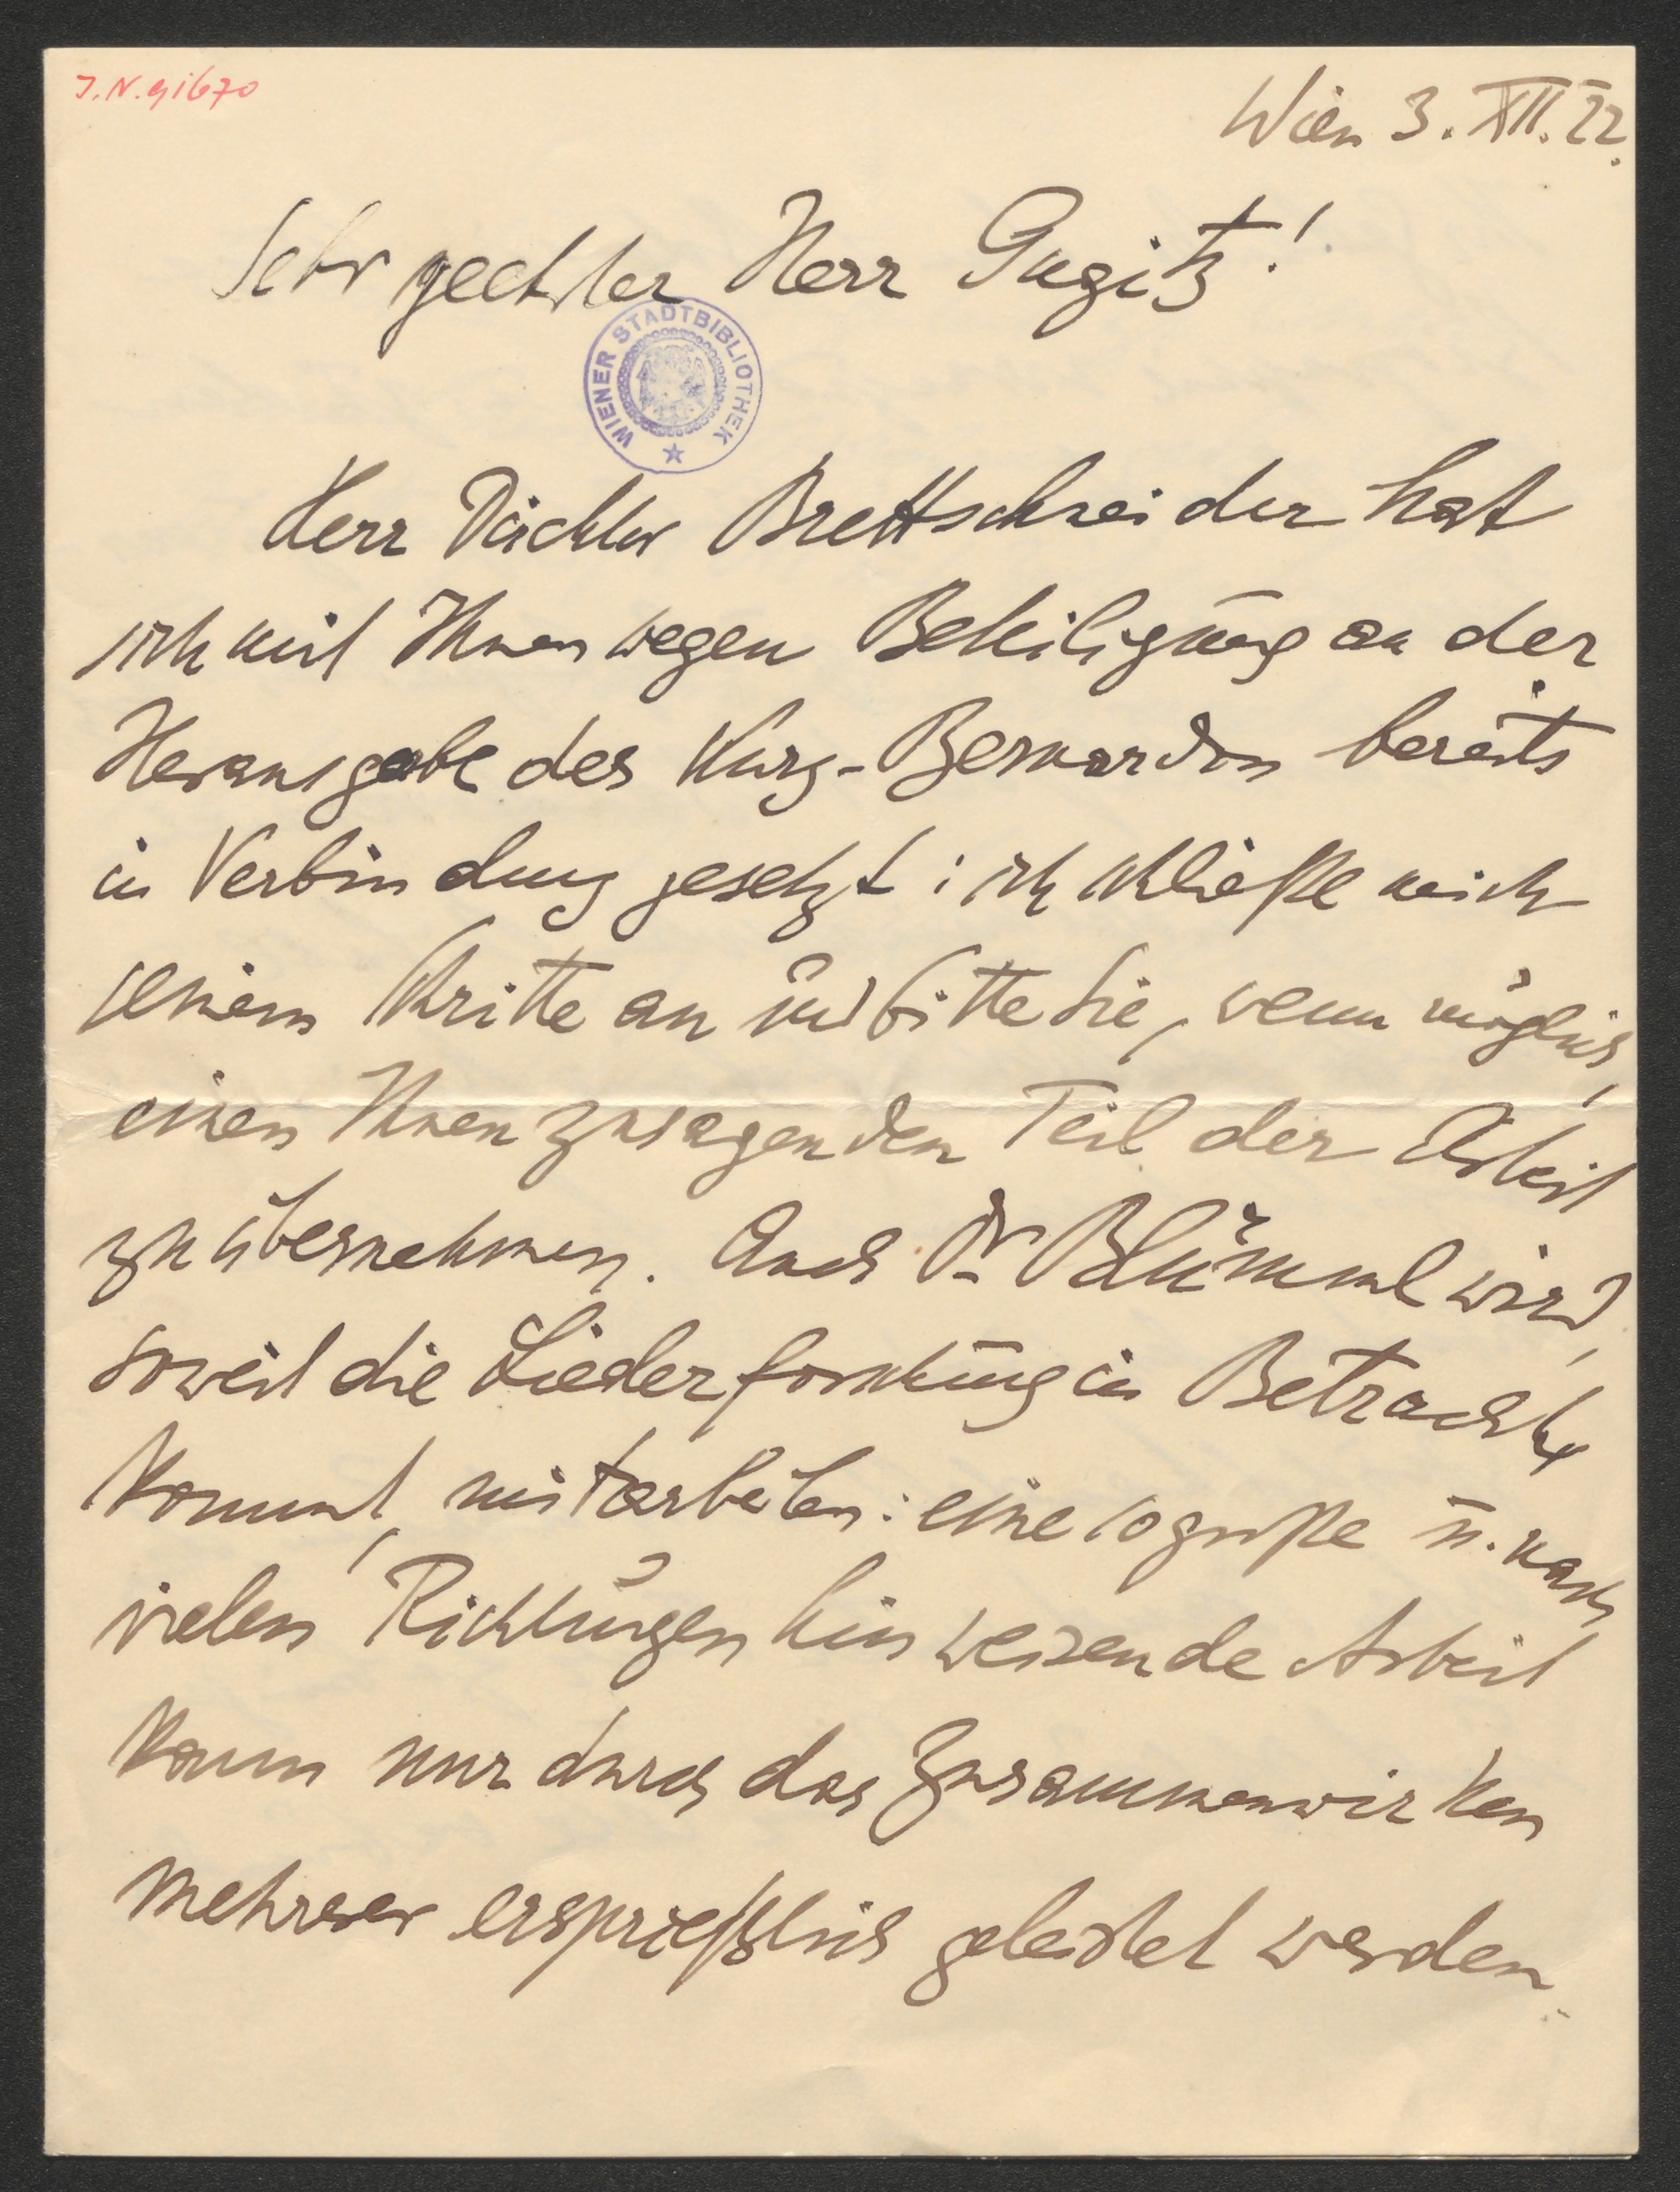 J.N. 91670
Wien 3. XII. 22.
Sehr geehrter Herr Gugitz!
WIENER STADTBIBLIOTHEK
Herr Brettschneider hat
sich mit Ihnen wegen Beteiligung an der
Herausgabe des Kurz-Bernardon bereits
in Verbindung gesetzt; ich schließe mich
seinem Schritte an und bitte Sie, wenn möglich,
einen Ihnen zusagenden Teil der Arbeit
zu übernehmen. Auch Dr Blümml wird,
soweit die Liederforschung in Betracht
kommt, mitarbeiten: eine so große u. nach
vielen Richtungen hin weisende Arbeit
kann nur durch das Zusammenwirken
mehrerer ersprießlich geleistet werden.